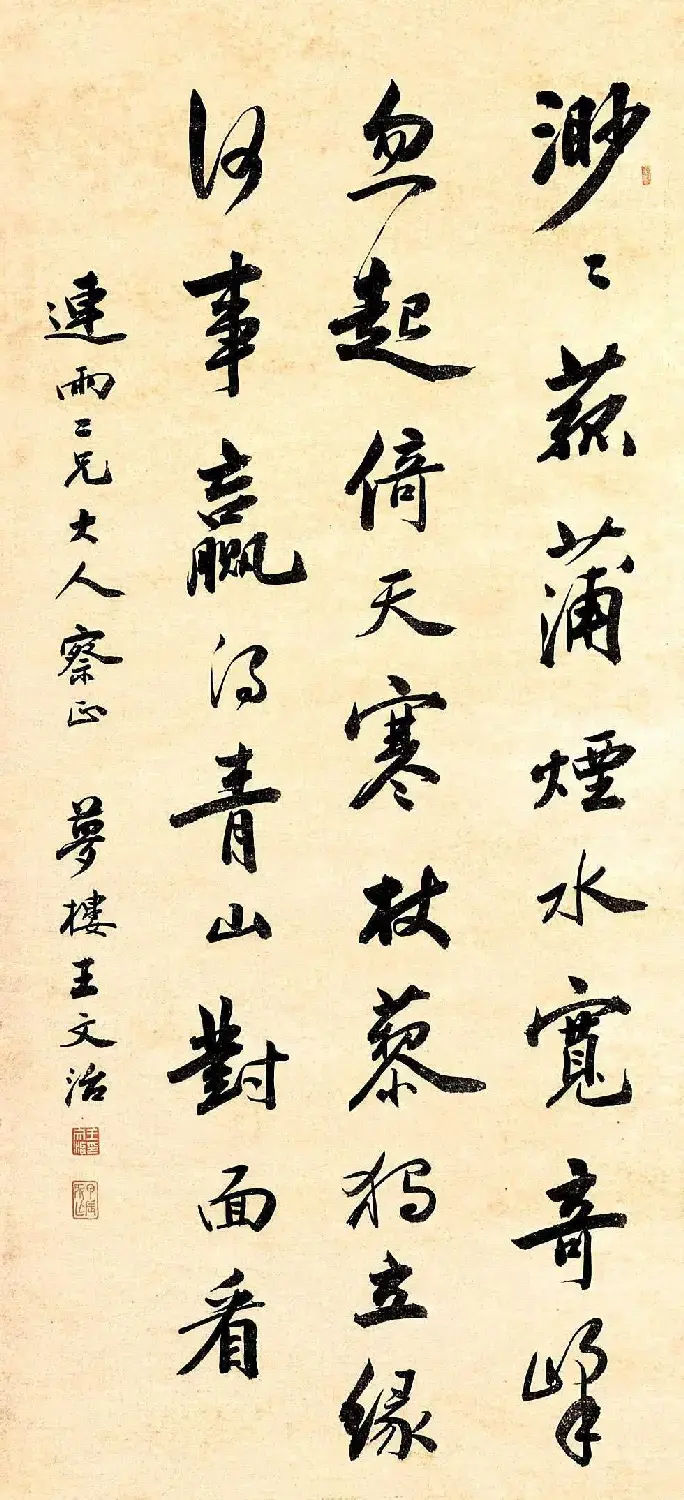 渺〻菰蒲煙水寬奇峯
忽起倚天寒杖藜獨立緣
何事贏得青山對面看
連雨二兄大人察正 夢樓王文治